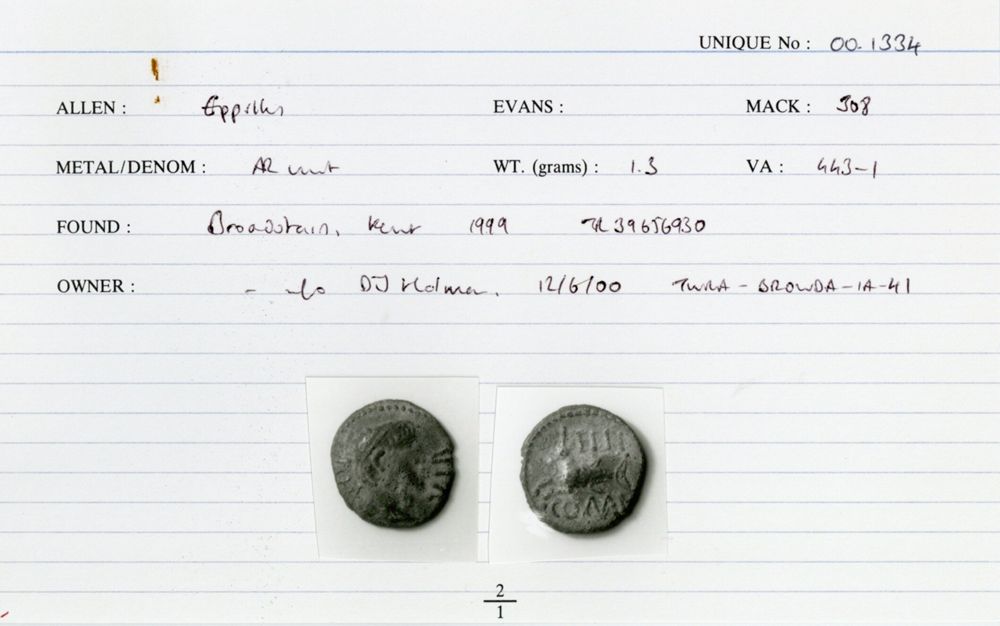 UNIQUE No : 00.1334
ALLEN : Eppillus EVANS : MACK : 308
METAL/DENOM : AR unit WT. (grams) : 1.3 VA : 443-1
FOUND : Broadstairs, Kent 1999 TR 39656930
OWNER : - DJ Holman, 12/6/00 TWRA - BROWDA-IA-41
COM
2
1